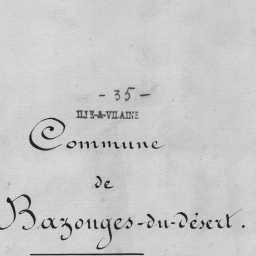 - 35 -
ILLE-&-VILAINE
Commune
de
Bazouges-du-désert.